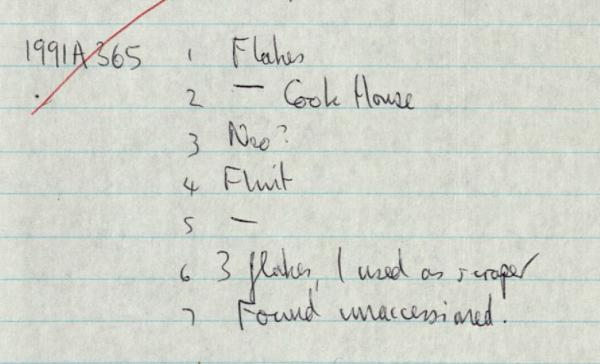 1991A365 1 Flakes
2 — Cook House
3 Neo?
4 Flint
5 —
6 3 flakes, 1 used as scraper
7 Found unaccessioned.